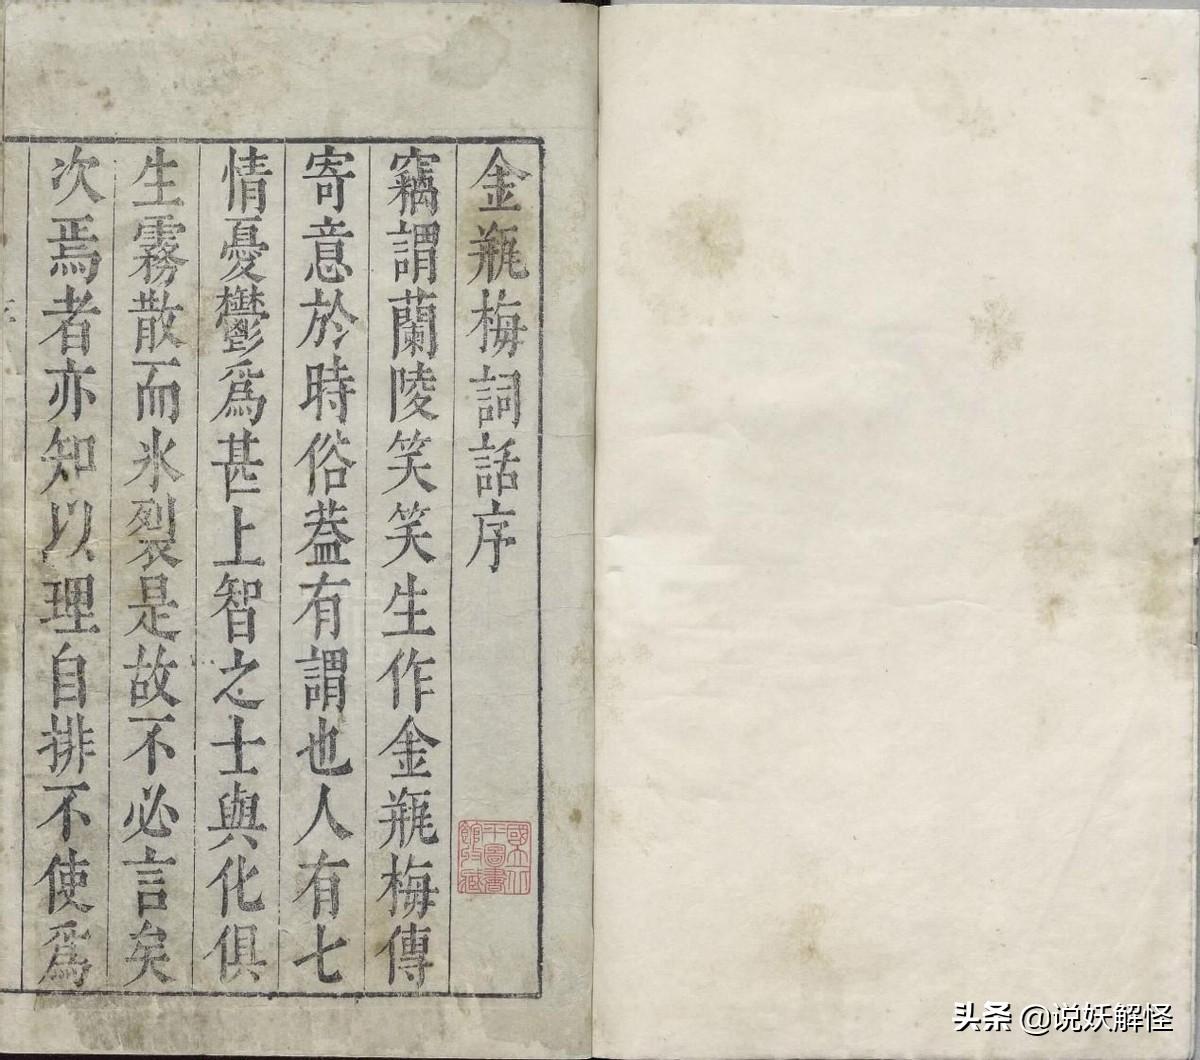 金瓶梅詞話序
竊謂蘭陵笑笑生作金瓶梅傳
寄意於時俗葢有謂也人有七
情憂鬱爲甚上智之士與化俱
生霧散而氷裂是故不必言矣
次焉者亦知以理自排不使爲
國立
平圖書
館收藏
头条 @说妖解怪